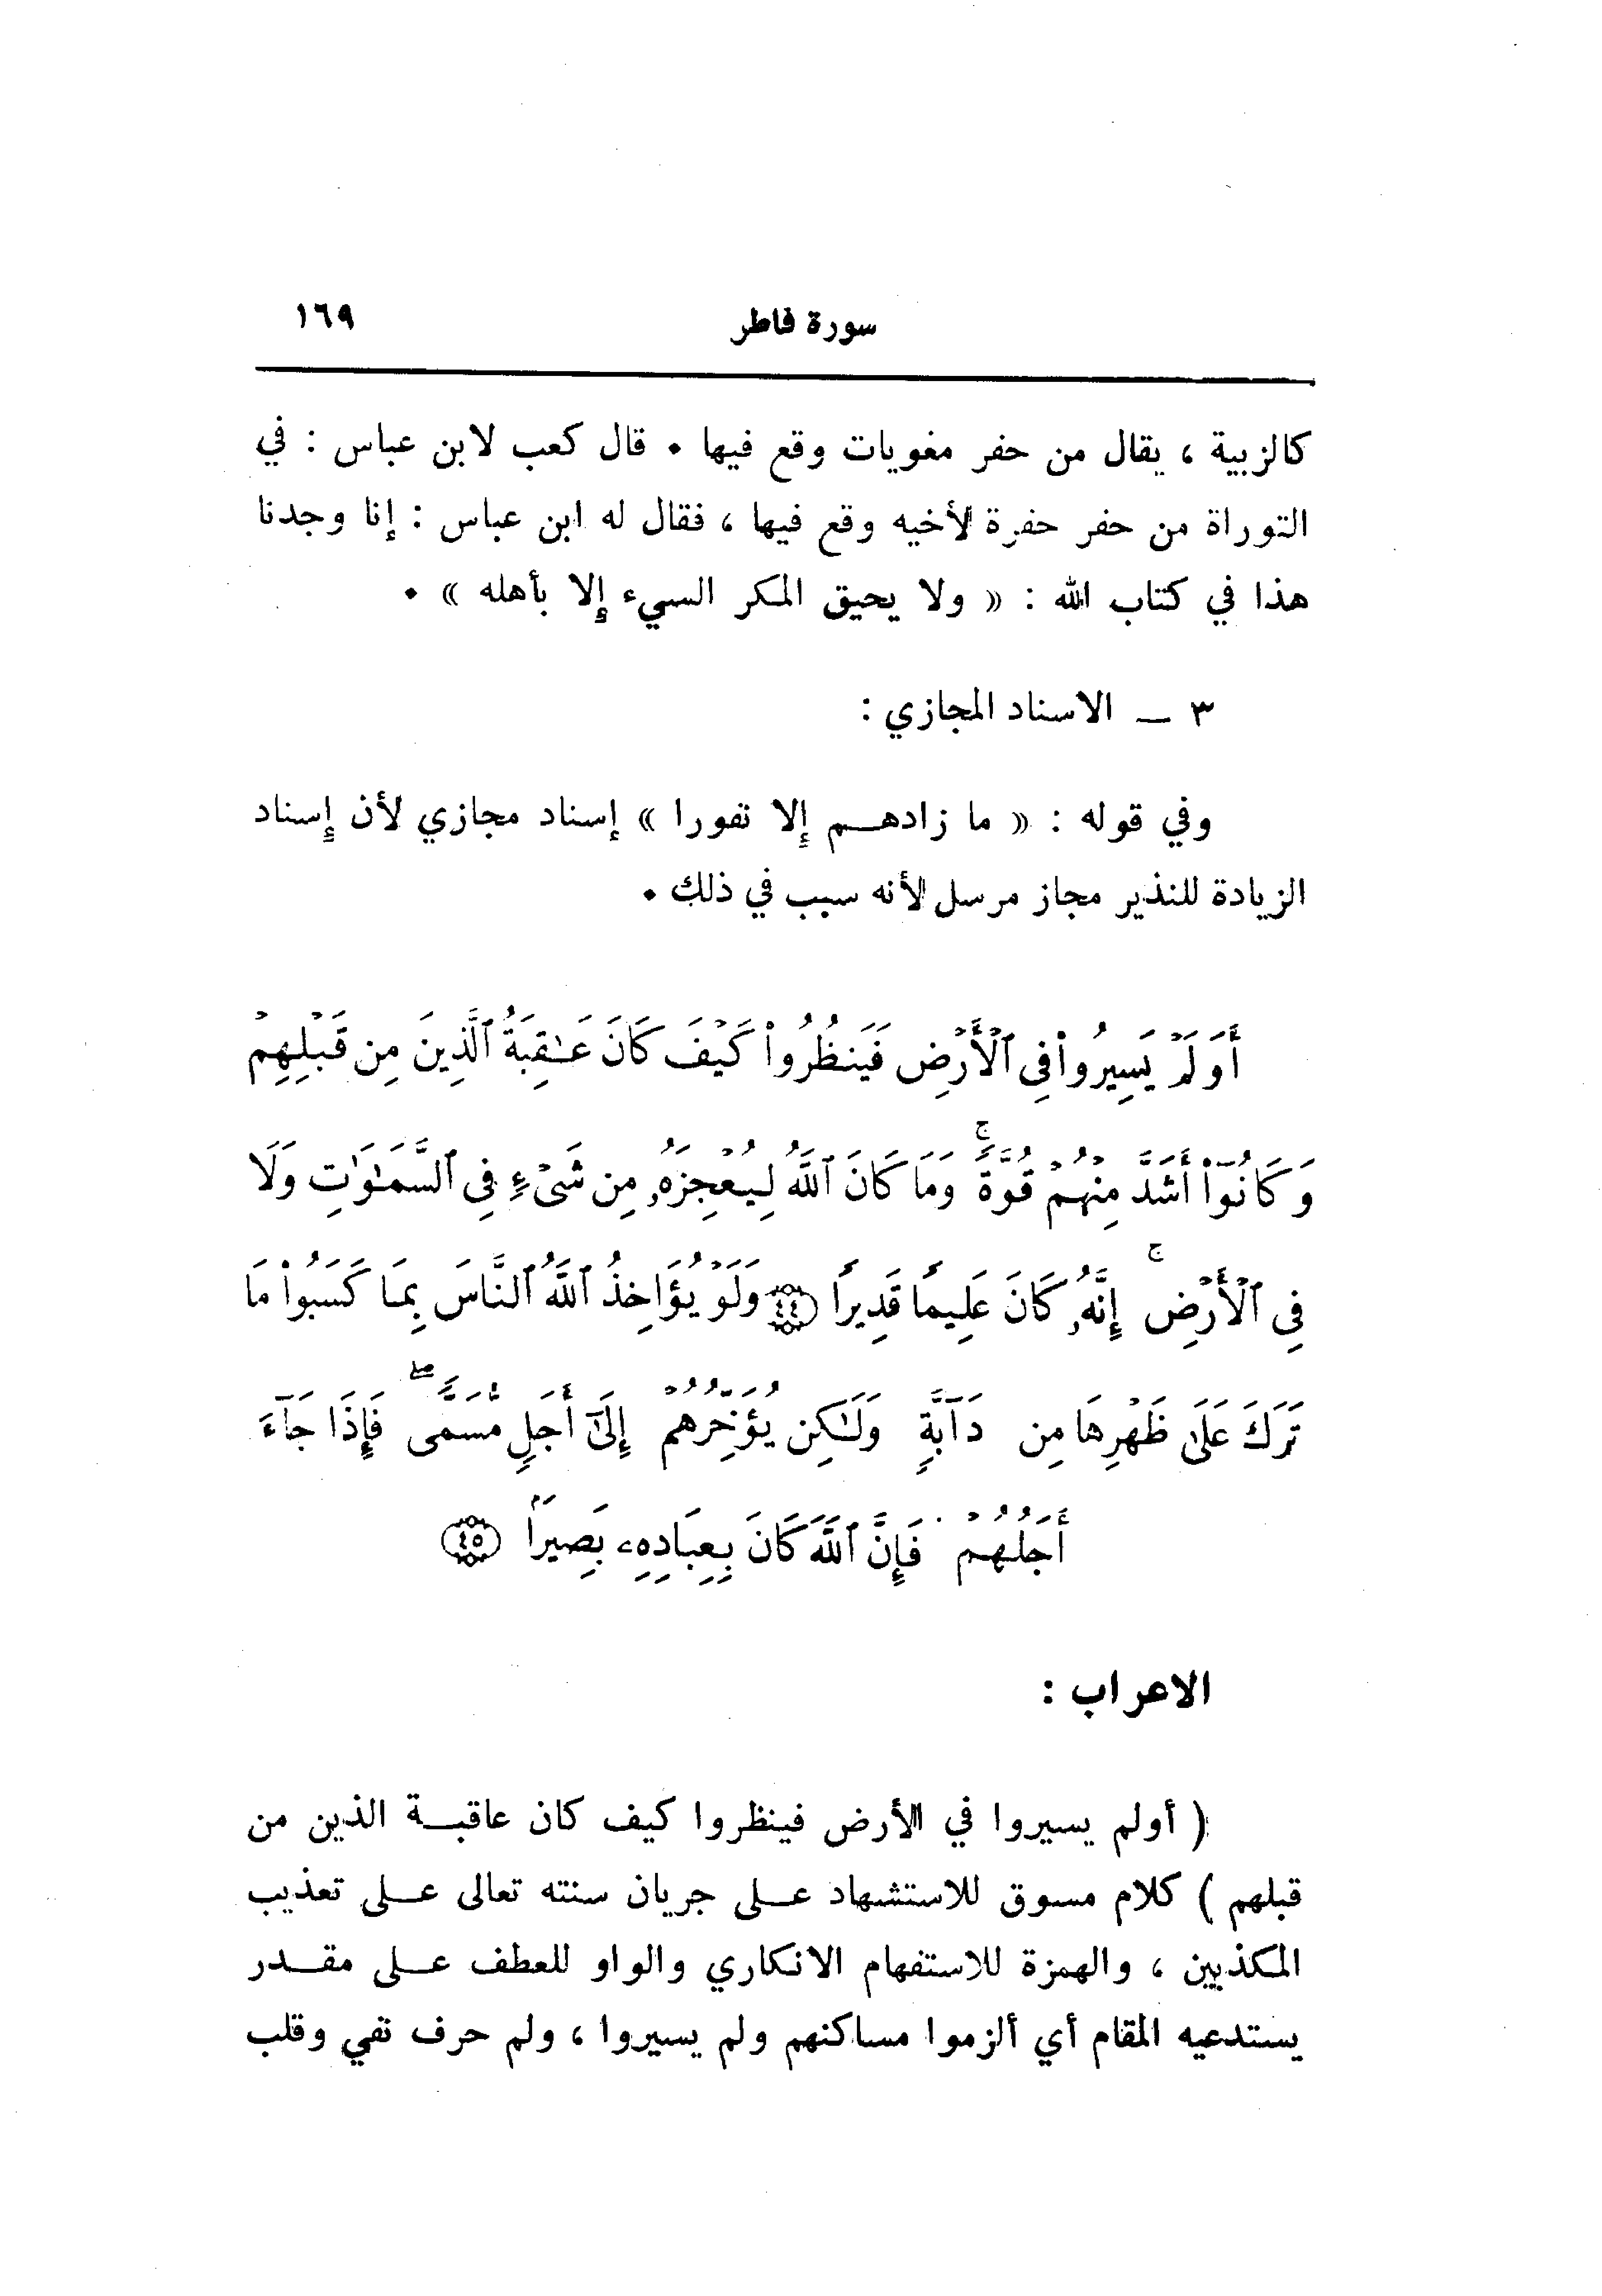 سورة فاطر ١٦٩
كالزبية ، يقال من حفر مغويات وقع فيها . قال كعب لابن عباس : في
التوراة من حفر حفرة لأخيه وقع فيها ، فقال له ابن عباس : إنا وجدنا
هذا في كتاب الله : « ولا يحيق المكر السيء إلا بأهله » .
٣ – الاسناد المجازي :
وفي قوله : « ما زادهم إلا نفورا » إسناد مجازي لأن إسناد
الزيادة للنذير مجاز مرسل لأنه سبب في ذلك .
أَوَلَمْ يَسِيرُوا۟ فِى ٱلْأَرْضِ فَيَنظُرُوا۟ كَيْفَ كَانَ عَـٰقِبَةُ ٱلَّذِينَ مِن قَبْلِهِمْ
وَكَانُوٓا۟ أَشَدَّ مِنْهُمْ قُوَّةً ۚ وَمَا كَانَ ٱللَّهُ لِيُعْجِزَهُۥ مِن شَىْءٍ فِى ٱلسَّمَـٰوَٰتِ وَلَا
فِى ٱلْأَرْضِ ۚ إِنَّهُۥ كَانَ عَلِيمًا قَدِيرًا ﴿٤٤﴾ وَلَوْ يُؤَاخِذُ ٱللَّهُ ٱلنَّاسَ بِمَا كَسَبُوا۟ مَا
تَرَكَ عَلَىٰ ظَهْرِهَا مِن دَآبَّةٍ وَلَـٰكِن يُؤَخِّرُهُمْ إِلَىٰٓ أَجَلٍ مُّسَمًّى ۖ فَإِذَا جَآءَ
أَجَلُهُمْ فَإِنَّ ٱللَّهَ كَانَ بِعِبَادِهِۦ بَصِيرًۢا ﴿٤٥﴾
الاعراب :
( أولم يسيروا في الأرض فينظروا كيف كان عاقبة الذين من
قبلهم ) كلام مسوق للاستشهاد على جريان سنته تعالى على تعذيب
المكذبين ، والهمزة للاستفهام الانكاري والواو للعطف على مقدر
يستدعيه المقام أي ألزموا مساكنهم ولم يسيروا ، ولم حرف نفي وقلب